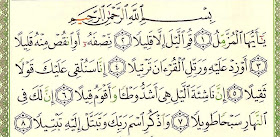 بِسْمِ اللَّهِ الرَّحْمَٰنِ الرَّحِيمِ
يَا أَيُّهَا الْمُزَّمِّلُ ۝١ قُمِ اللَّيْلَ إِلَّا قَلِيلًا ۝٢ نِصْفَهُ أَوِ انْقُصْ مِنْهُ قَلِيلًا
۝٣ أَوْ زِدْ عَلَيْهِ وَرَتِّلِ الْقُرْءَانَ تَرْتِيلًا ۝٤ إِنَّا سَنُلْقِي عَلَيْكَ قَوْلًا
ثَقِيلًا ۝٥ إِنَّ نَاشِئَةَ اللَّيْلِ هِيَ أَشَدُّ وَطْئًا وَأَقْوَمُ قِيلًا ۝٦ إِنَّ لَكَ فِي
النَّهَارِ سَبْحًا طَوِيلًا ۝٧ وَاذْكُرِ اسْمَ رَبِّكَ وَتَبَتَّلْ إِلَيْهِ تَبْتِيلًا ۝٨